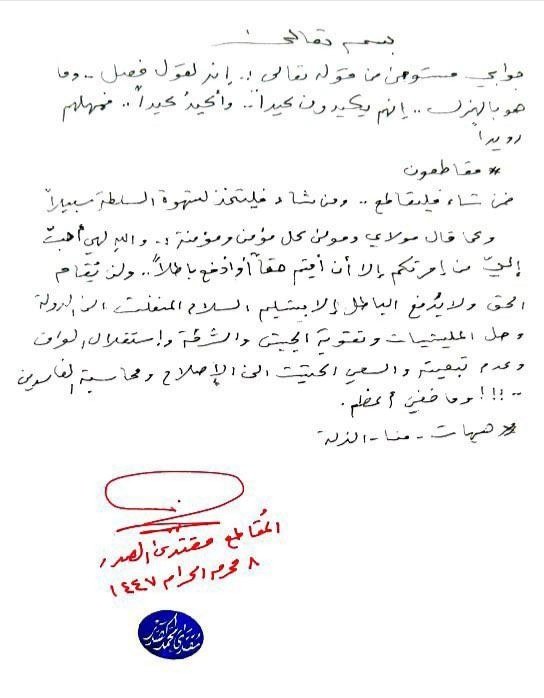 بسمه تعالى
جوابي مستوحى من قوله تعالى : إنه لقول فصل .. وما
هو بالهزل .. إنهم يكيدون كيداً .. وأكيدُ كيداً .. فمهلهم
رويداً
* مقاطعون
فمن شاء فليقاطع .. ومن شاء فليتخذ لشهوة السلطة سبيلاً
وكما قال مولاي ومولى كل مؤمن ومؤمنة : والله لهي أحبّ
إليّ من إمرتكم إلا أن أقيم حقاً أو أدفع باطلاً .. ولن يُقام
الحق ولا يُدفع الباطل إلا بتسليم السلاح المنفلت الى الدولة
وحل المليشيات وتقوية الجيش والشرطة وإستقلال العراق
وعدم تبعيته والسعي الحثيث الى الإصلاح ومحاسبة الفاسدين
.. !!! وما خفي أعظم .
* هيهات - منا - الذلة
المُقاطع مقتدى الصدر
٨ محرم الحرام ١٤٤٧